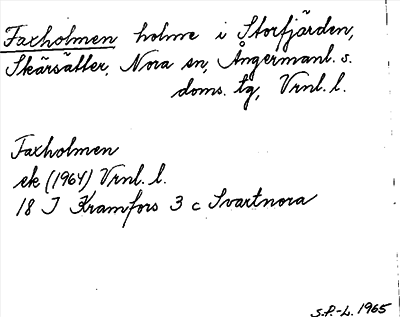 Faxholmen holme i Storfjärden,
Skärsätter, Nora sn, Ångermanl. s.
doms. tg, Vrnl. l.
Faxholmen
ek (1964) Vrnl. l.
18 I Kramfors 3 c Svartnora
S.P.-L. 1965